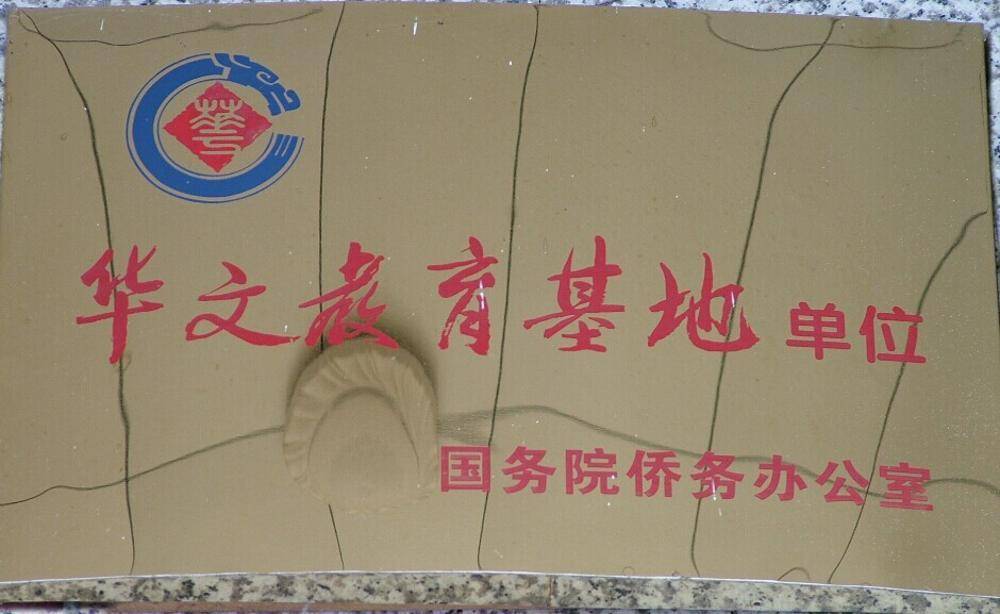 華
华文教育基地单位
国务院侨务办公室